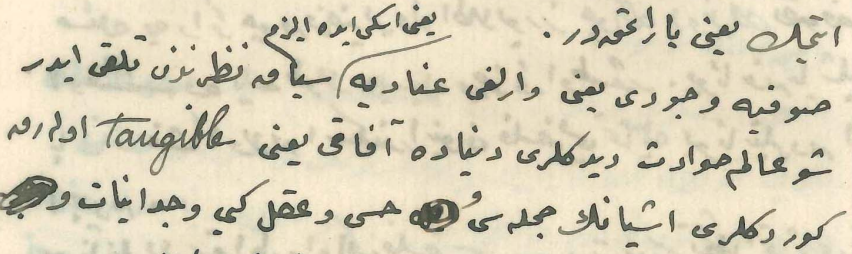 اتمك یعنی یاراتمقدر. یعنی اسكی ایده الیزم
صوفیه وجودی یعنی وارلغی عنادیه سیاق نظرندن تلقی ایدر
شو عالم حوادث دیدكلری دنیاده آفاقی یعنی tangible اوله رق
كوردكلری اشیانك جمله سی و حسی و عقل كبی وجدانیات و